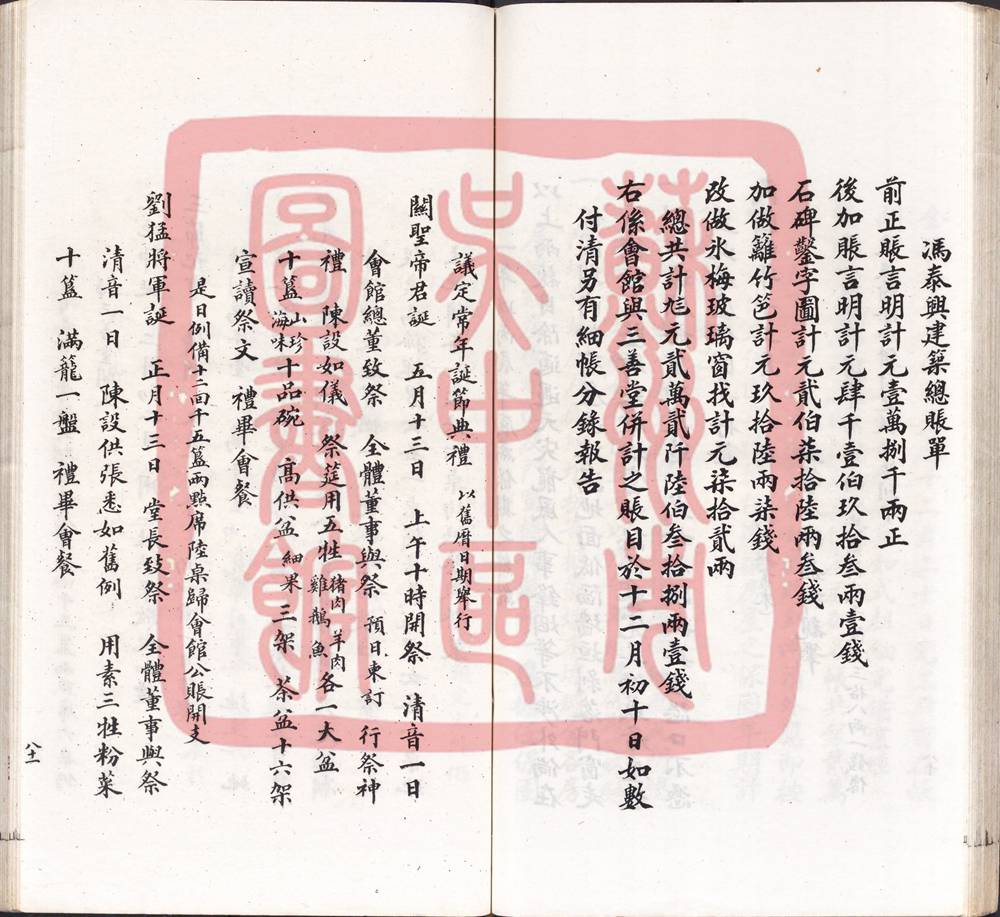 馮泰興建築總賬單
前正賬言明計元壹萬捌千兩正
後加賬言明計元肆千壹伯玖拾叁兩壹錢
石碑鑿字圖計元貳伯柒拾陸兩叁錢
加做籬竹笆計元玖拾陸兩柒錢
改做氷梅玻璃窗找計元柒拾貳兩
總共計𠩄元貳萬貳阡陸伯叁拾捌兩壹錢
右係會館與三善堂併計之賬目於十二月初十日如數
付清另有細帳分錄報告
議定常年誕節典禮 以舊曆日期舉行
關聖帝君誕 五月十三日 上午十時開祭 清音一日
會館總董致祭 全體董事與祭 預日柬訂 行祭神
禮 陳設如儀 祭筵用五牲 猪肉 羊肉 雞 鵝 魚 各一大盆
十簋 山珍 海味 十品碗 高供盆 細果 三架 茶盆十六架
宣讀祭文 禮畢會餐
是日例備十二囬千五簋兩點席陸桌歸會館公賬開支
劉猛將軍誕 正月十三日 堂長致祭 全體董事與祭
清音一日 陳設供張悉如舊例 用素三牲粉菜
十簋 滿籠一盤 禮畢會餐
八十一
蘇州市
吳中區
圖書館